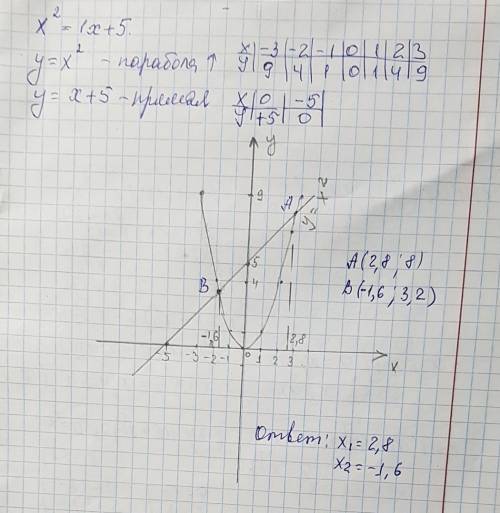 x² = 1x+5.
y=x² - парабола ↑
x|-3|-2|-1|0|1|2|3
y|9|4|1|0|1|4|9
y = x+5 - прямая
x|0|-5
y|+5|0
y
9
A
y=x²
5
4
A(2,8; 8)
B
B(-1,6; 3,2)
-1,6
2,8
-5 -3 -2 -1 0 1 2 3
x
Ответ: x₁=2,8
x₂=-1,6